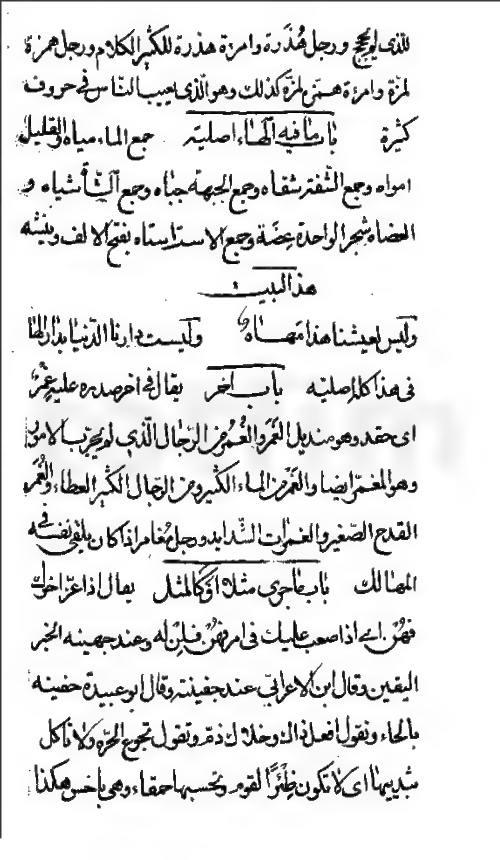 للذى لوجج ورجل هُذَرة وامرءة هذرة للكثير الكلام ورجل همزة
لمزة وامرءة همزة لمزة كذلك وهو الذى يعيب الناس فى حروف
كثيرة باب ما فيه الهاء اصلية جمع الماء مياه والقليل
امواه وجمع الشفة شفاه وجمع الجبهة جباه وجمع الشاة شياه و
العضاه شجر الواحدة عِضَة وجمع الاست استاه بفتح الالف وينشد
هذا البيت
وليس لعيشنا هذا مهاه وليست دارنا الدنيا بدار الهاء
فى هذا كله اصلية باب اخر يقال فى اخر صدره عليه غِمْرٌ
اى حقد وهو منديل الغَمَر والغُمْر من الرجال الذي لم يجرب الامور
وهو المغمّر ايضا والغَمْر من الماء الكثير ومن الرجال الكثير العطاء والغُمَر
القدح الصغير والغمرات الشدايد ورجل مُغامر اذا كان يلقى نفسه فى
المهالك باب ما جرى مثلا او كالمثل يقال اذا عزّ اخوك
فهُن اى اذا صعب عليك فى امر فلِن له وعند جهينه الخبر
اليقين وقال ابن الاعرابي عند جفينة وقال ابو عبيدة حفينه
بالحاء وتقول افعل ذاك وخلاك ذم وتقول تجوع الحرّة ولا تاكل
بثدييها اى لا تكون ظِئْرًا لقوم وتحسبها حمقاء وهى باخس هكذا